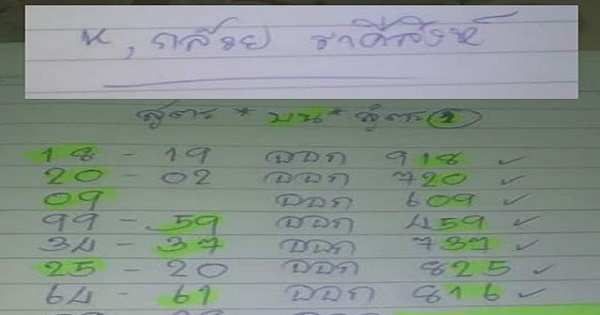 น, กล้วย ราศีสิงห์
สูตร * บน * สูตร 2
18 - 19 ออก 918 ✓
20 - 02 ออก 720 ✓
09 ออก 609 ✓
99 - 59 ออก 459 ✓
34 - 37 ออก 737 ✓
25 - 20 ออก 825 ✓
64 - 61 ออก 816 ✓